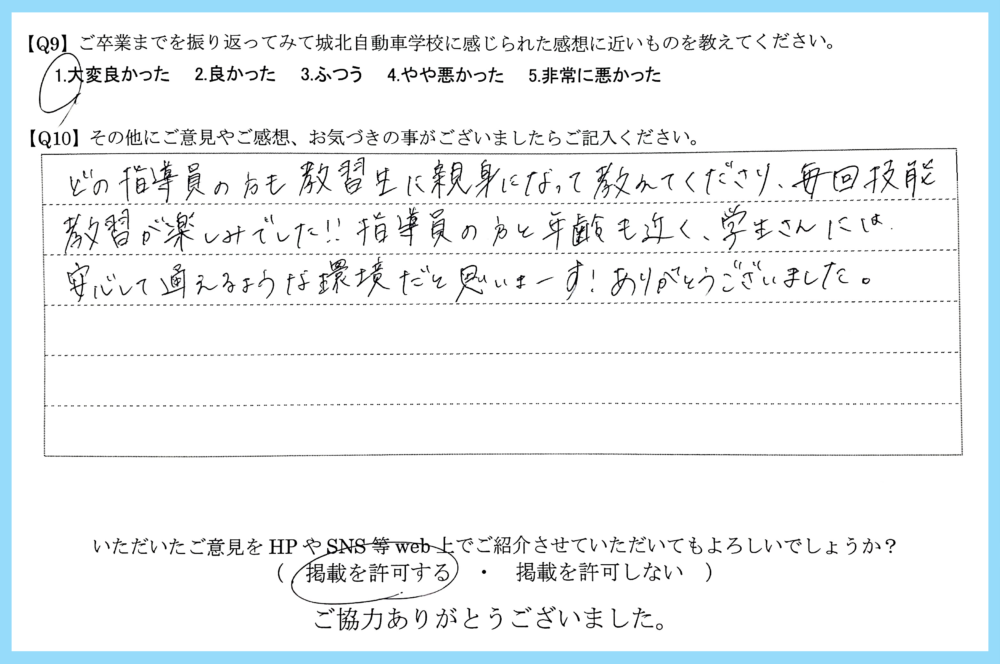 【Q9】ご卒業までを振り返ってみて城北自動車学校に感じられた感想に近いものを教えてください。
1.大変良かった 2.良かった 3.ふつう 4.やや悪かった 5.非常に悪かった
【Q10】その他にご意見やご感想、お気づきの事がございましたらご記入ください。
どの指導員の方も教習生に親身になって教えてくださり、毎回技能
教習が楽しみでした!!指導員の方と年齢も近く、学生さんには
安心して通えるような環境だと思いまーす!ありがとうございました。
いただいたご意見をHPやSNS等web上でご紹介させていただいてもよろしいでしょうか？
（ 掲載を許可する ・ 掲載を許可しない ）
ご協力ありがとうございました。